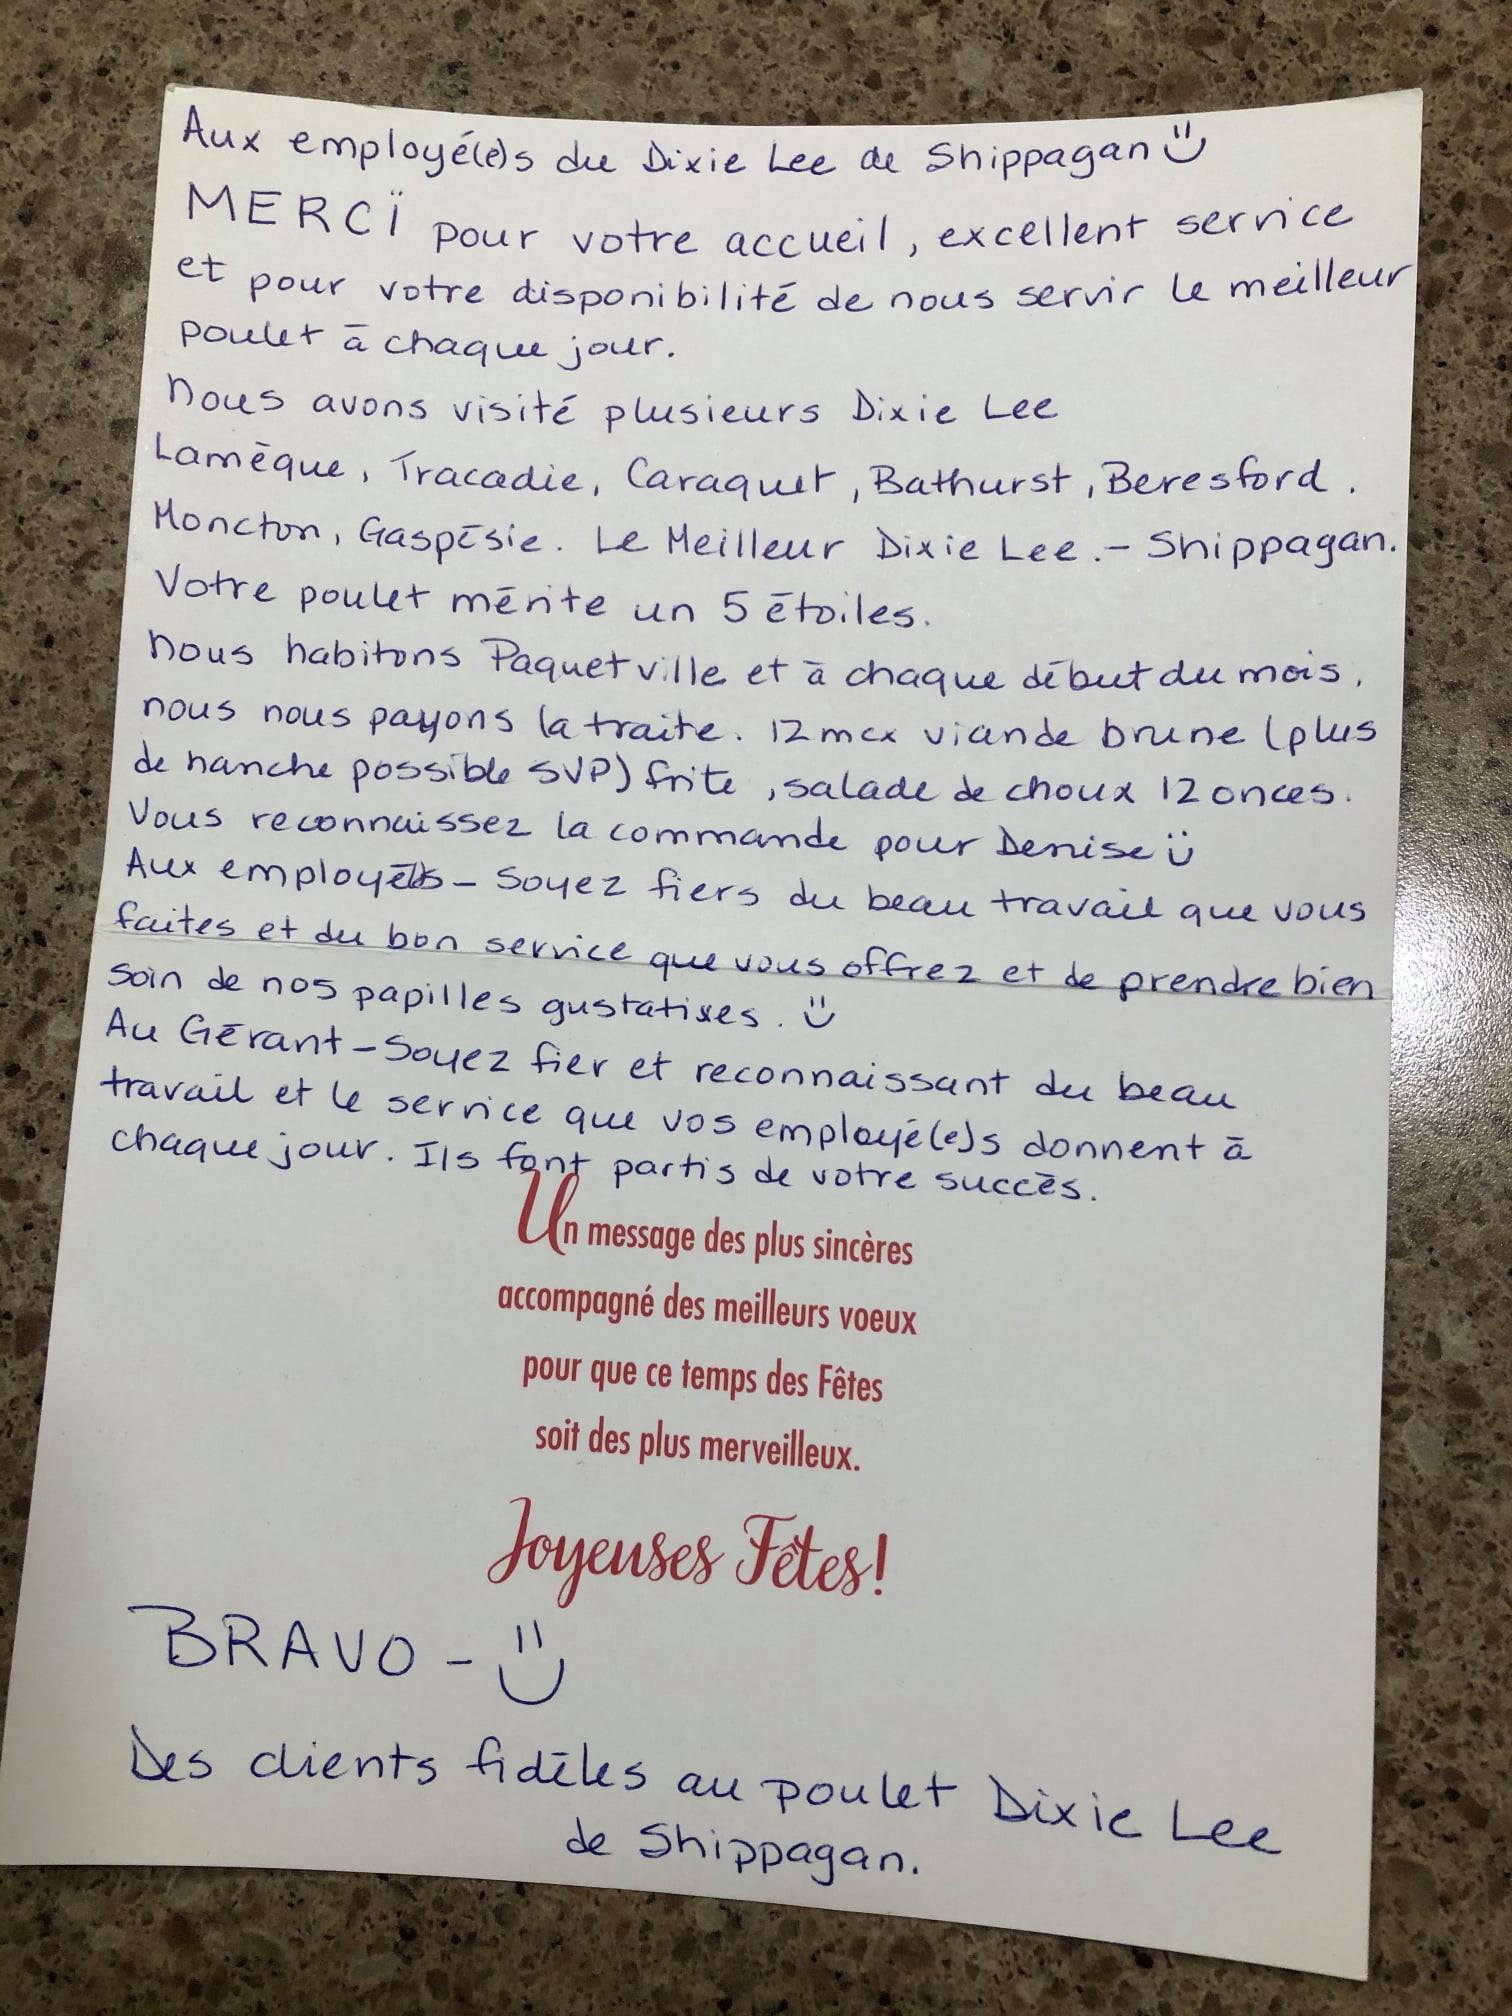 Aux employé(e)s du Dixie Lee de Shippagan
MERCÏ pour votre accueil, excellent service
et pour votre disponibilité de nous servir le meilleur
poulet à chaque jour.
Nous avons visité plusieurs Dixie Lee
Lamèque, Tracadie, Caraquet, Bathurst, Beresford.
Moncton, Gaspésie. Le Meilleur Dixie Lee.- Shippagan.
Votre poulet mérite un 5 étoiles.
Nous habitons Paquetville et à chaque début du mois,
nous nous payons la traite. 12 mcx viande brune (plus
de hanche possible SVP) frite, salade de choux 12 onces.
Vous reconnaissez la commande pour Denise
Aux employés - Soyez fiers du beau travail que vous
faites et du bon service que vous offrez et de prendre bien
soin de nos papilles gustatives.
Au Gérant - Soyez fier et reconnaissant du beau
travail et le service que vos employé(e)s donnent à
chaque jour. Ils font partis de votre succès.
Un message des plus sincères
accompagné des meilleurs voeux
pour que ce temps des Fêtes
soit des plus merveilleux.
Joyeuses Fêtes!
BRAVO -
Des clients fidèles au poulet Dixie Lee
de Shippagan.